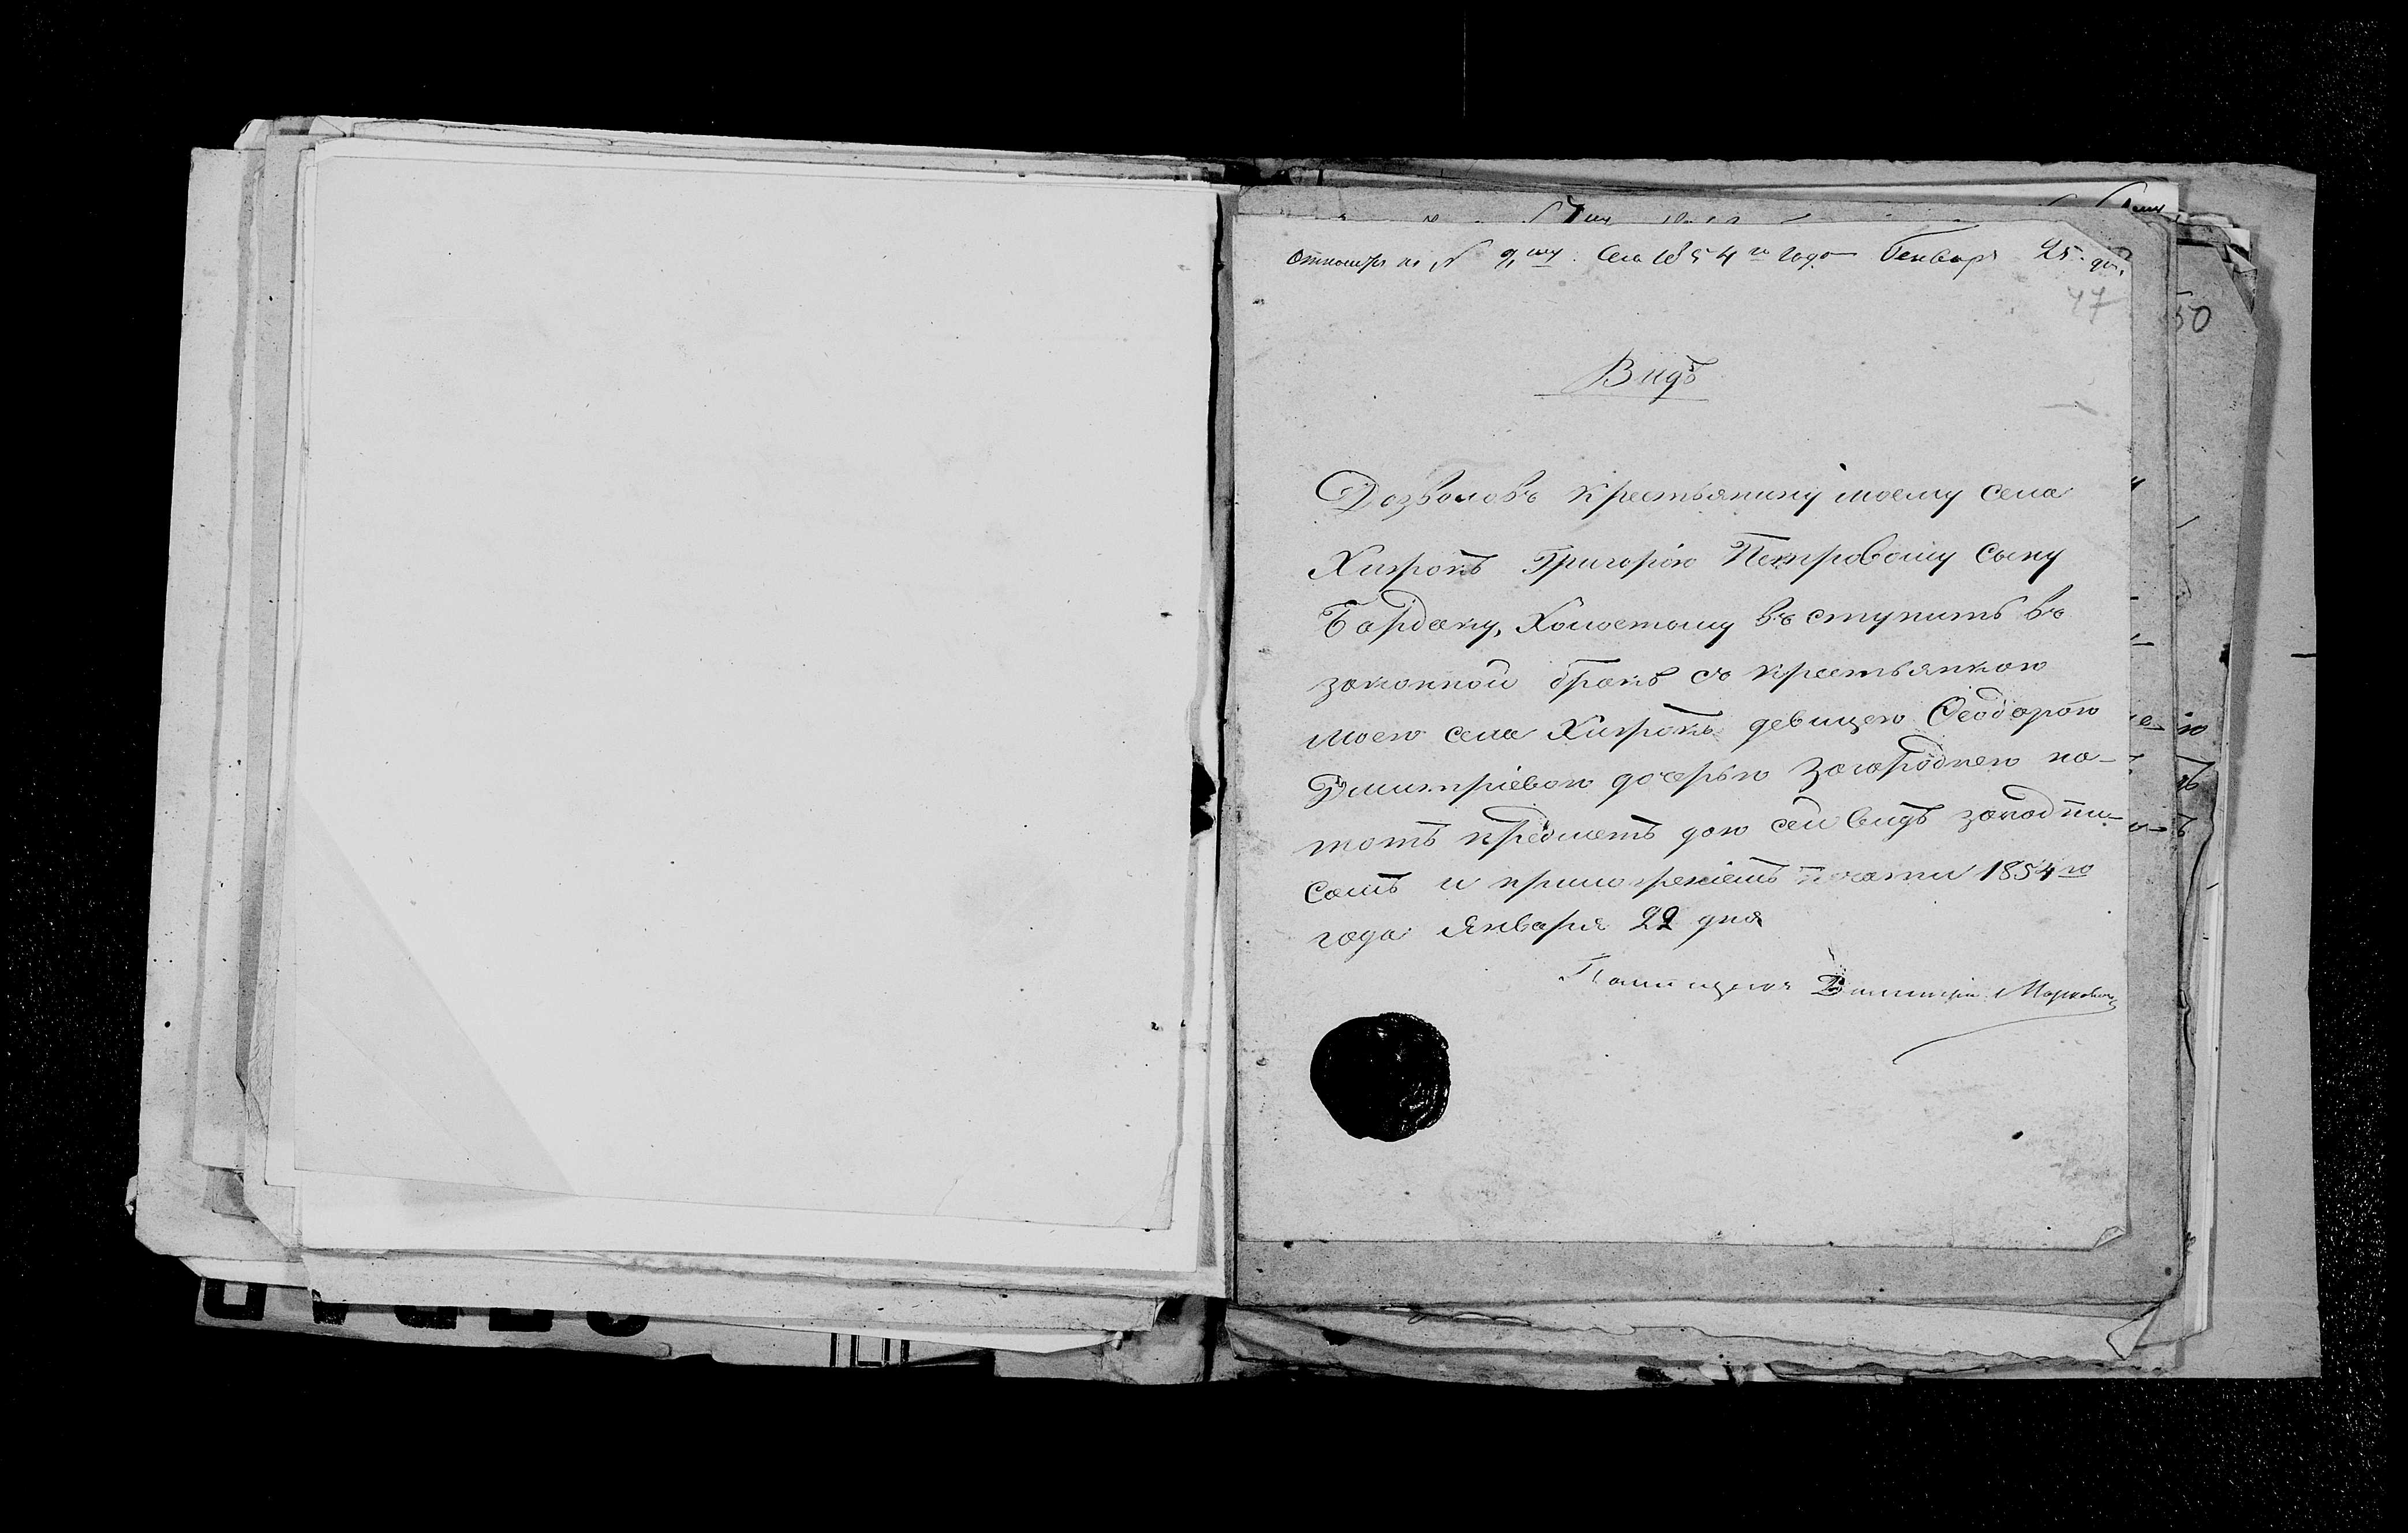 къ N 9 му. Сего 1854 го Года Генваря 25. дн.
47
50
Видъ
Дозволовъ крестьянину моему села
Хитрокъ Григорію Петровому сыну
Бардаку, Холостому въступить въ
законной бракъ съ крестьянкою
моею села Хитрокъ девицею Феодорою
Дмитріевою дочерью Загароднею на-
тотъ предметъ даю сей видъ заподпи-
сомъ и приложеніемъ печати 1854 го
года Января 22 дня
Помещикъ Дмитрій Маркович